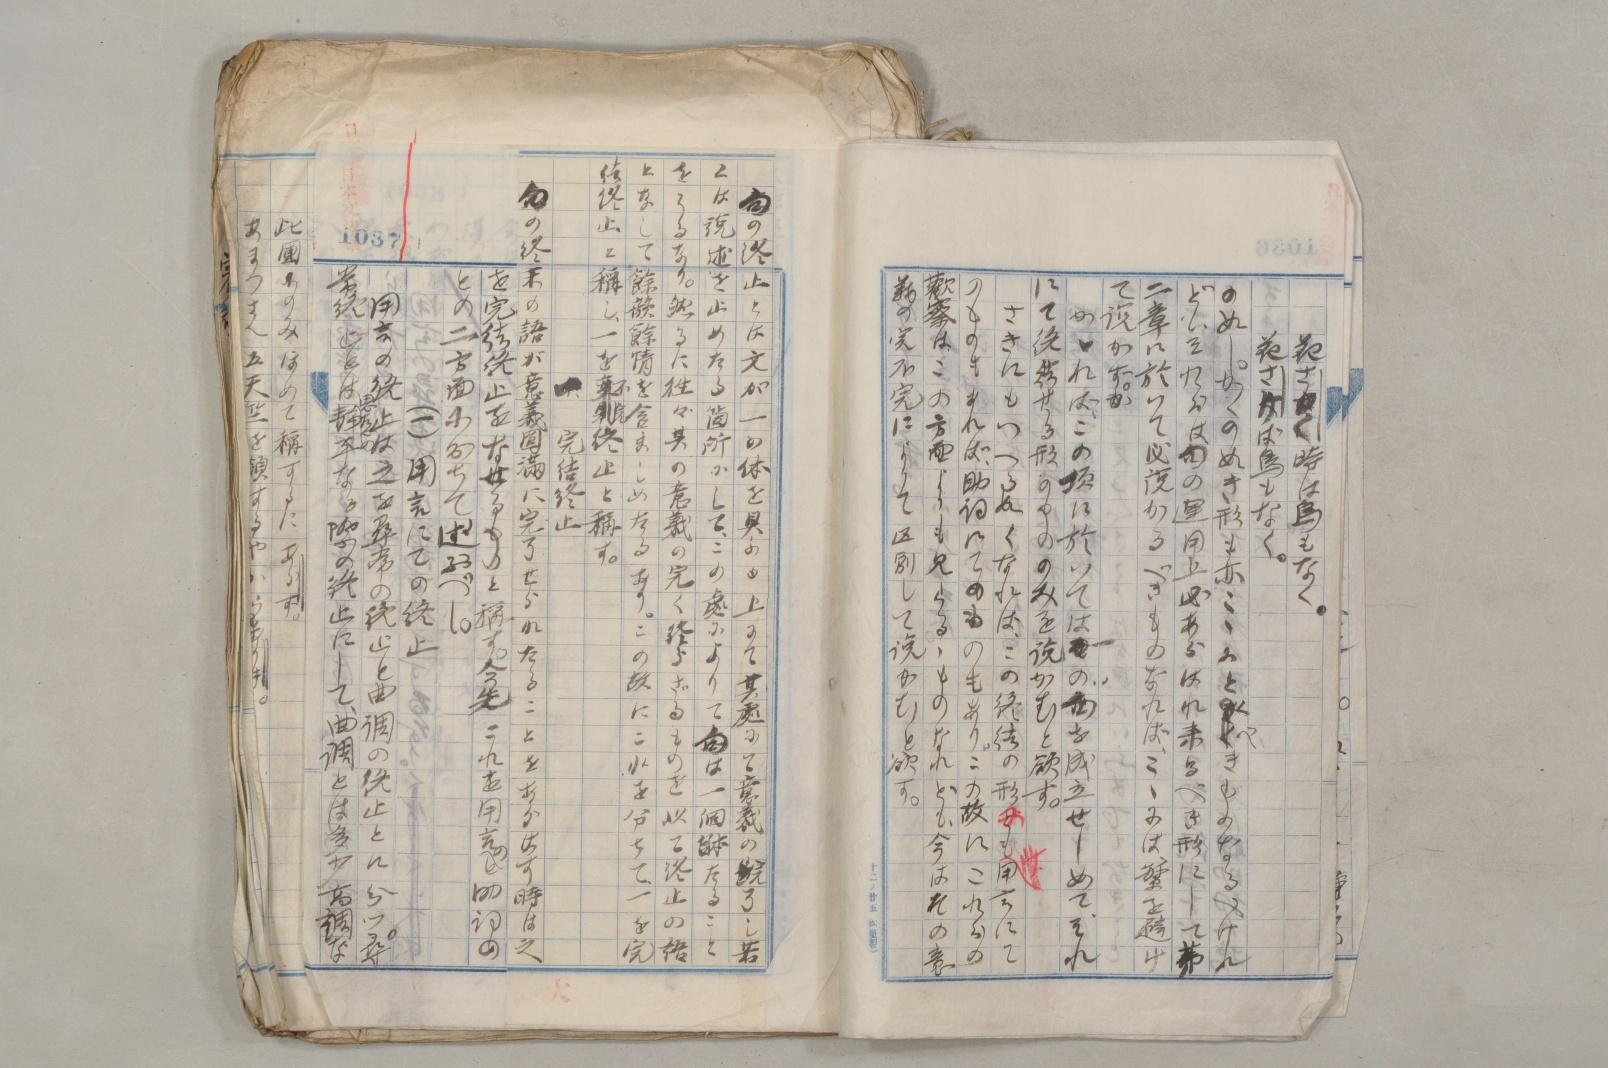 花さかく時は鳥もなく。
花さかば鳥もなく。
のぬし。かくのぬき形も亦こゝにとくべきものなるべけれ
どもそれらは句の運用上必あらはれ来るべき形にして第
二章に於いて必説かるべきものなれば、こゝには繁を避け
て説かず。
かゝれば、この項に於いては一の句を成立せしめて、それ
にて終結せる形のもののみを説かむと欲す。
さきにもいへる如くなれば、この終結の形も用言にて
のものもあれば、助詞にてのものもあり。この故にこれらの
観察はこの方面よりも見らるゝものなれども、今はその意
義の完不完によりて区別して説かむと欲す。
句の終止とは文が一の体を具ふる上にて其処にて意義の完了し若
くは説述を止めたる箇所にして、この処によりて句は一個体たること
をうるなり。然るに往々其の意義の完く終らざるものを以て終止の語
となして餘韻餘情を含ましめたるあり。この故にこれを分ちて、一を完
結終止と称し、一を不完終止と称す。
一 完結終止
句の終末の語が意義圓満に完了せられたることをあらはす時は之
を完結終止をなせるものと称す。今先これを用言と助詞の
との二方面にわかちて述ぶべし。
(一)用言にての終止
用言の終止は之を尋常の終止と曲調の終止とに分つ。尋
常終止とは思想の静平なる際の終止にして、曲調とは多少高調な
1037
此國のみほめて称するにあらず。
あまつさへ五天竺を領するや
1036
十二ノ廿五